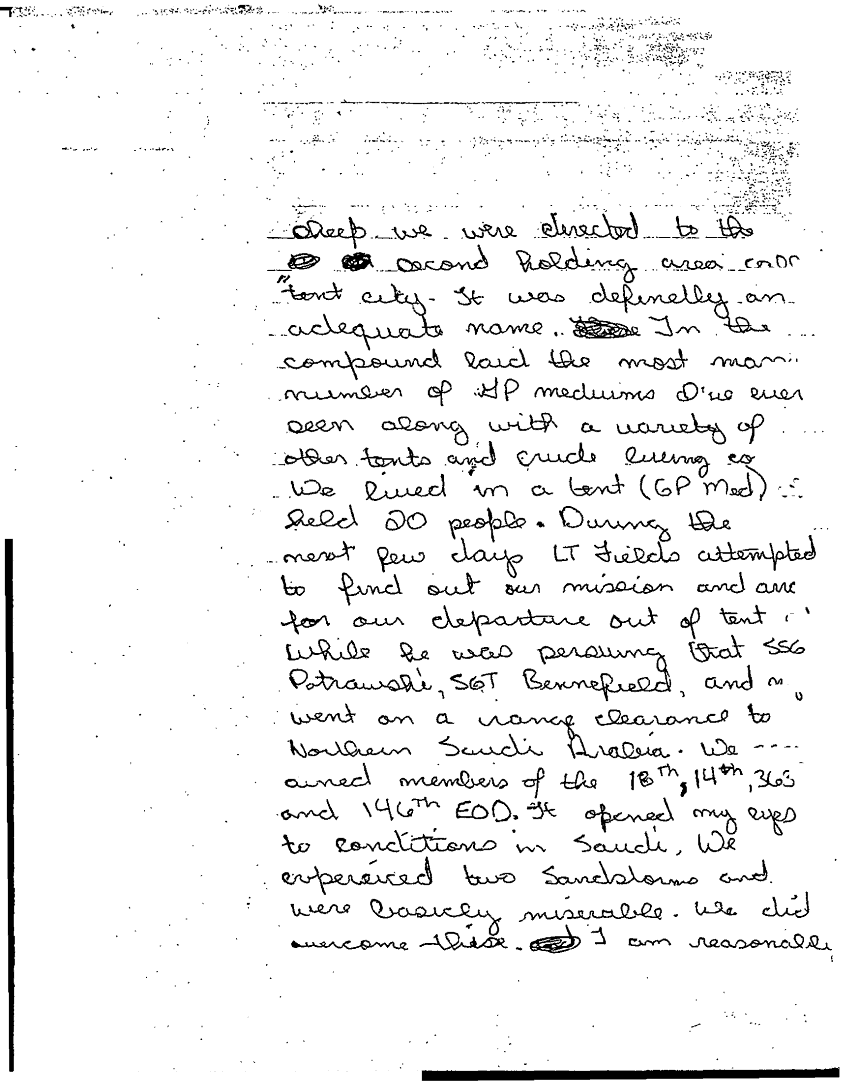 sheep we were directed to the
second holding area or
"tent city. It was definelly an
adequate name. In the
compound laid the most
number of GP mediums I've ever
seen along with a variety of
other tents and crude living
We lived in a tent (GP Med)
held 20 people. During the
next few days LT Fields attempted
to find out our mission and
for our departure out of tent
While he was persuing that SSG
Petrawski, SGT Bennefield, and
went on a range clearance to
Northern Saudi Arabia. We
members of the 18th, 14th, 363
and 146th EOD. It opened my eyes
to conditions in Saudi, We
experciced two Sandstorms and
were basicly miserable. We did
overcome these. I am reasonable